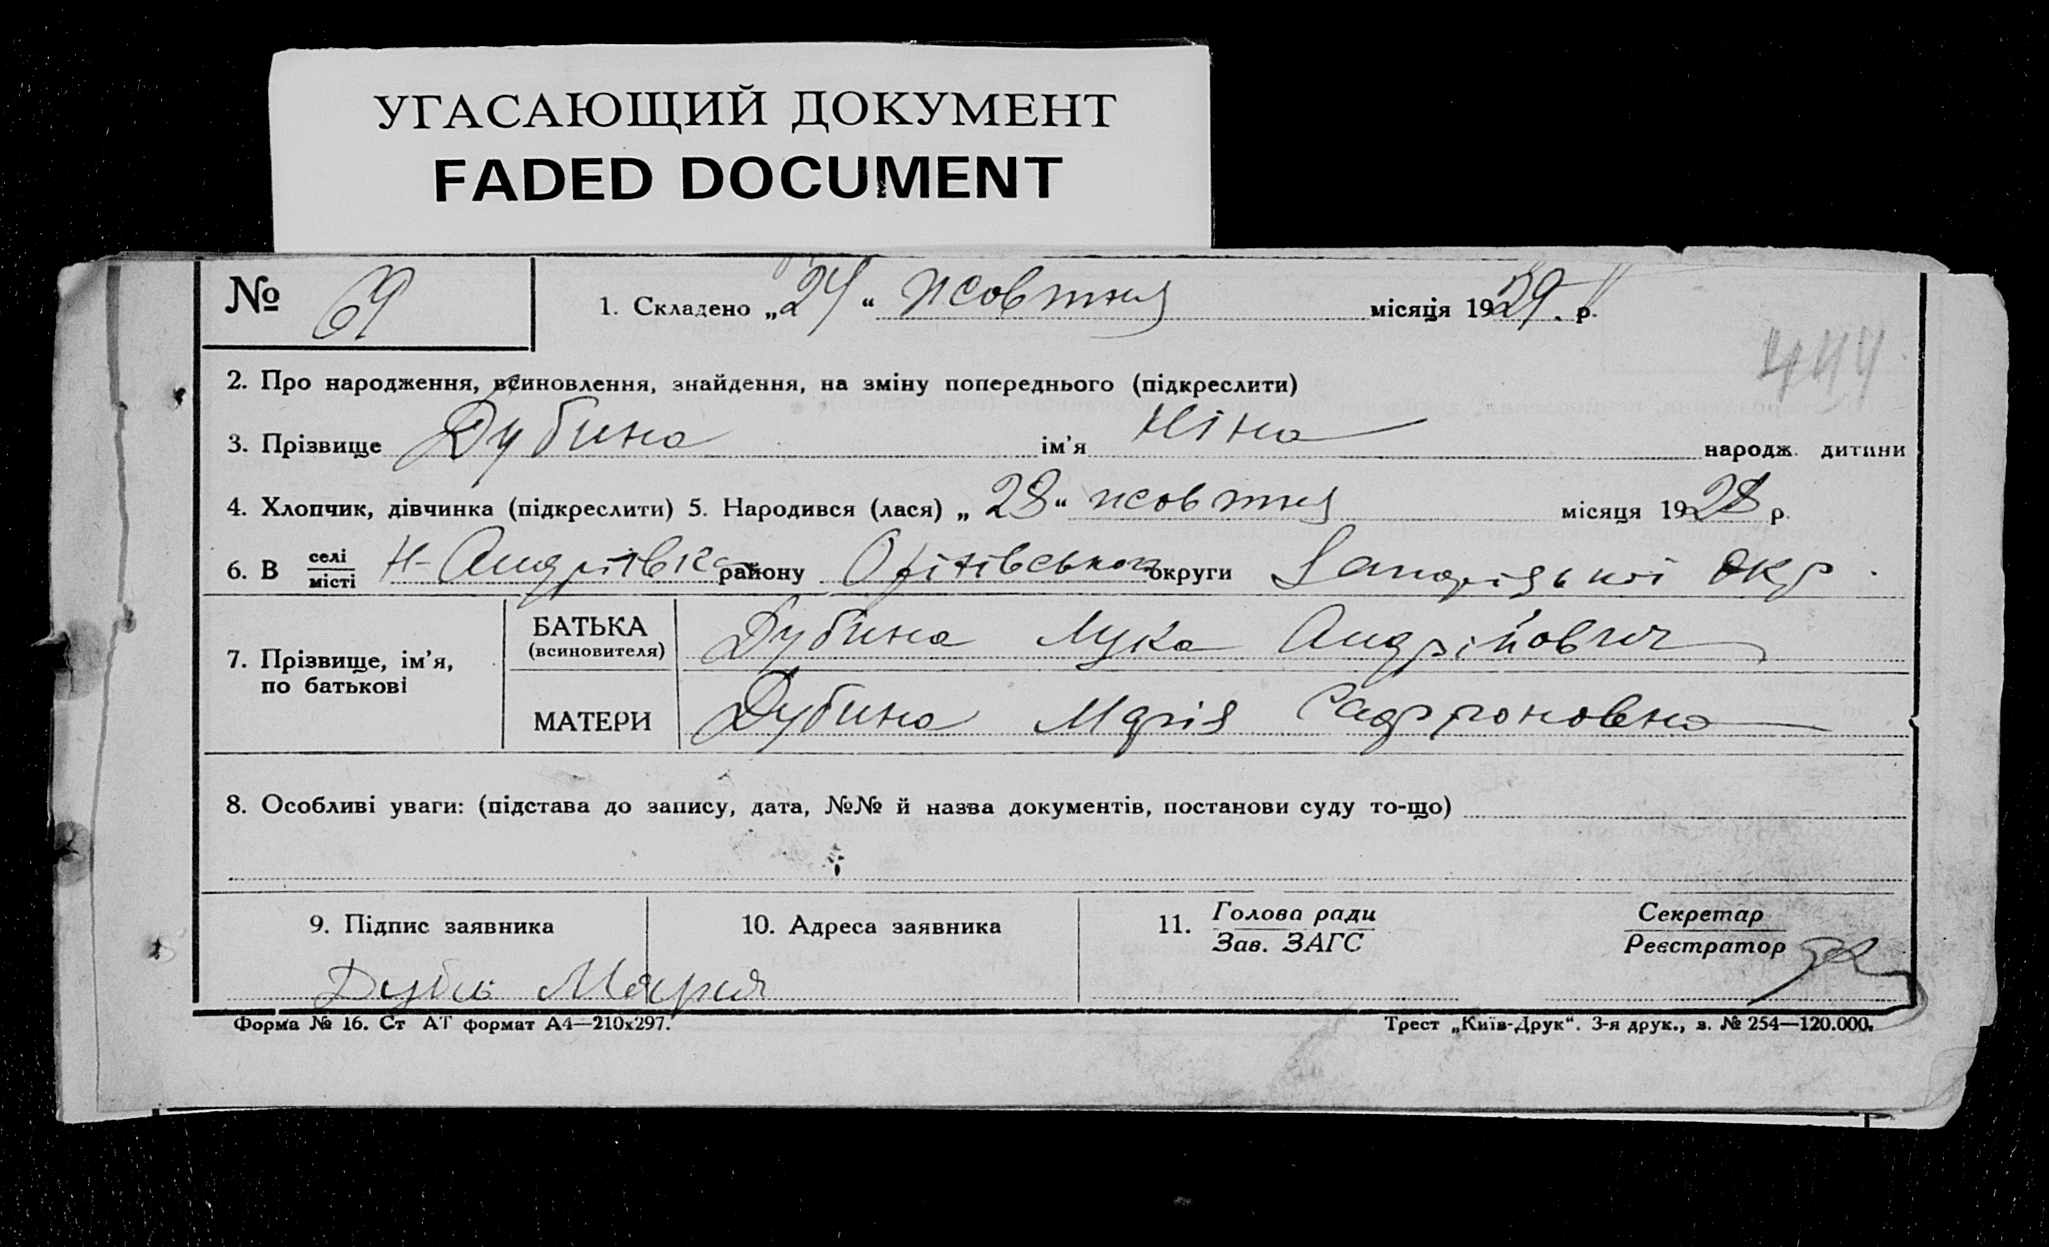 УГАСАЮЩИЙ ДОКУМЕНТ
FADED DOCUMENT
№ 69
1. Складено „24“ жовтня місяця 1929. р.
444
2. Про народження, всиновлення, знайдення, на зміну попереднього (підкреслити)
3. Прізвище Дубина ім’я Ніна народж. дитини
4. Хлопчик, дівчинка (підкреслити) 5. Народився (лася) „28“ жовтня місяця 1928 р.
6. В селі/місті Н-Андріївка району Оріхівського округи Запорізької окр.
7. Прізвище, ім’я, по батькові
БАТЬКА (всиновителя) Дубина Лука Андрійович
МАТЕРИ Дубина Марія Сафроновна
8. Особливі уваги: (підстава до запису, дата, №№ й назва документів, постанови суду то-що)
9. Підпис заявника 10. Адреса заявника 11. Голова ради / Зав. ЗАГС Секретар / Реєстратор
Мария
Форма № 16. Ст АТ формат А4—210х297. Трест „Київ-Друк“. 3-я друк., з. № 254—120.000.